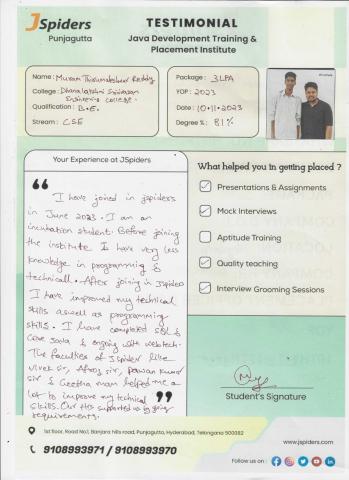 JSpiders
Punjagutta
TESTIMONIAL
Java Development Training &
Placement Institute
Name : Muram Thirumaleshwar Reddy
College : Dhanalakshmi Srinivasan
Engineering college.
Qualification : B.E.
Stream : CSE
Package : 3LPA
YOP : 2023
Date : 10-11-2023
Degree % : 81%
Your Experience at JSpiders
I have joined in jspiders
in June 2023. I am an
incubation student. Before joining
the institute I have very less
knowledge in programming &
technicall. After joining in Jspiders
I have improved my technical
skills aswell as programming
skills. I have completed SQL &
Core Java & ongoing with webtech.
The faculties of JSpider like
vivek sir, Afroz sir, pawan kumar
sir & Geetha mam helped me a
lot to improve my technical
skills. Our HRs supported us by giving
requirements.
What helped you in getting placed ?
Presentations & Assignments
Mock Interviews
Aptitude Training
Quality teaching
Interview Grooming Sessions
Student's Signature
1st floor, Road No.1, Banjara hills road, Punjagutta, Hyderabad, Telangana 500082
9108993971 / 9108993970
www.jspiders.com
Follow us on :